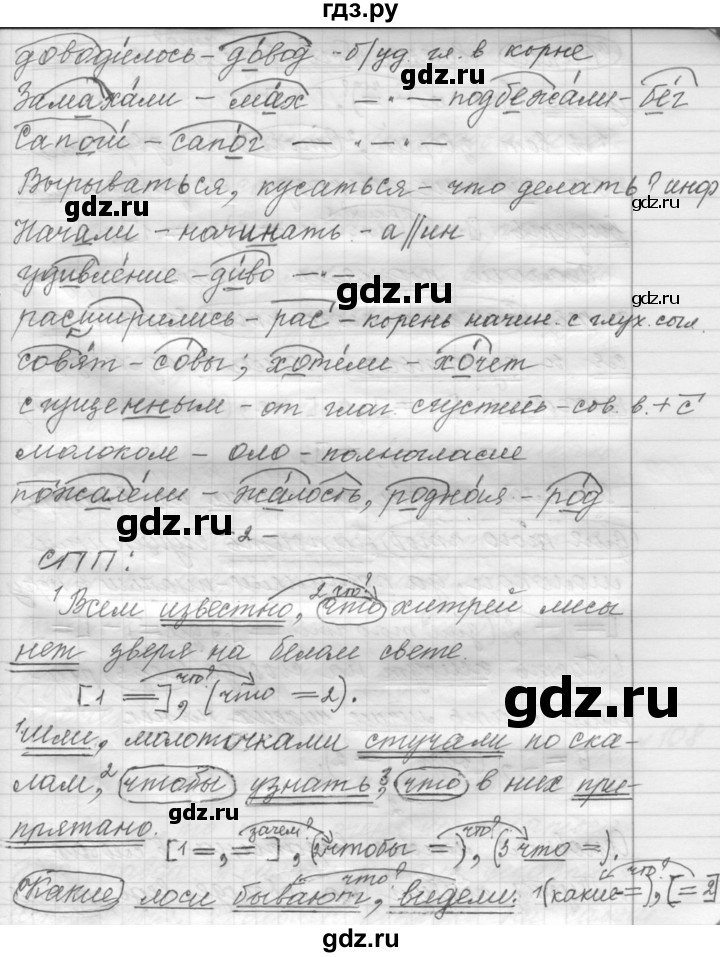 гдз.ру
доводи́лось – до́вод – б/уд. гл. в корне
Замаха́ли – ма́х — " — подбежа́ли – бе́г
Сапоги́ – сапо́г — " —
Вырываться, кусаться – что делать? инф
Нача́ли – начина́ть – а//ин
удивле́ние – ди́во — " —
расширились – рас – корень начин. с глух. согл.
совя́т – со́вы; хоте́ли – хо́чет
сгущенным – от глаг. сгустить – сов. в. + с
молоком – оло – полногласие
пожале́ли – жа́лость, родно́я – ро́д
– 2 –
СПП:
1 Всем известно, 2 что? что хитрей лисы
нет зверя на белом свете.
[1 =], что? (что = 2).
1 Шли, молоточками стучали по ска-
лам, 2 чтобы узнать, 3 что в них при-
прятано. [1 =, =], зачем? (2 чтобы =), что? (3 что =).
Какие лоси бывают, что? видели. 1 (какие =), что? [= 2]
gdz.ru
gdz.ru
gdz.ru
gdz.ru
gdz.ru
gdz.ru
gdz.ru
gdz.ru
gdz.ru
gdz.ru
gdz.ru
gdz.ru
гдз.ру